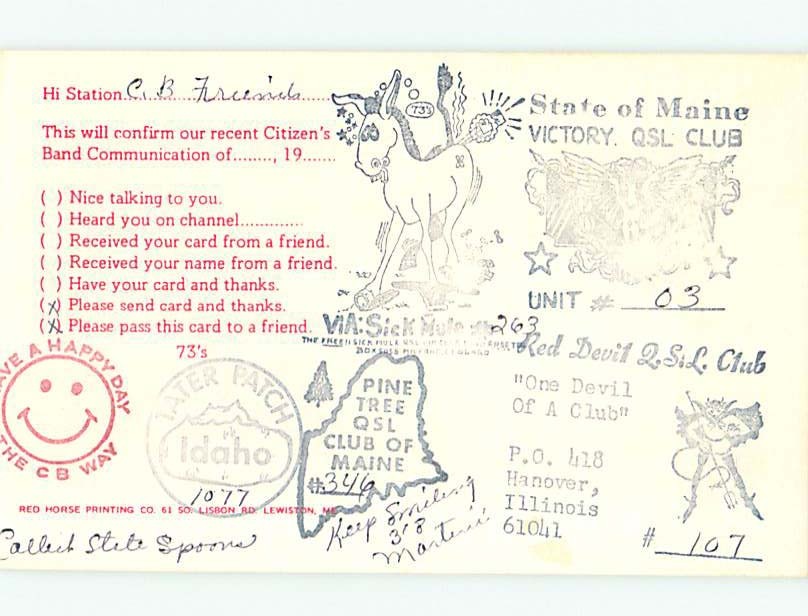 Hi Station C. B Friends
This will confirm our recent Citizen's
Band Communication of........, 19.......
( ) Nice talking to you.
( ) Heard you on channel.............
( ) Received your card from a friend.
( ) Received your name from a friend.
( ) Have your card and thanks.
(x) Please send card and thanks.
(x) Please pass this card to a friend.
73's
73's
State of Maine
VICTORY. QSL CLUB
UNIT # 03
ViA: Sick Mule #263
Red Devil Q.S.L. Club
"One Devil
Of A Club"
P.O. 418
Hanover,
Illinois
61041
# 107
HAVE A HAPPY DAY
THE CB WAY
TATER PATCH
Idaho
1077
PINE
TREE
QSL
CLUB OF
MAINE
#346
RED HORSE PRINTING CO. 61 SO. LISBON RD. LEWISTON, ME.
Keep Smiling
Collect State Spoons